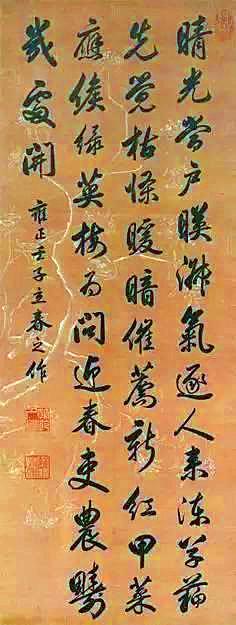 晴光當戶暎淑氣逐人來凍草蘇
先覺枯條暖暗催薦新紅甲菜
應候綠英梅為問迎春吏農疇
幾處開
雍正壬子立春之作